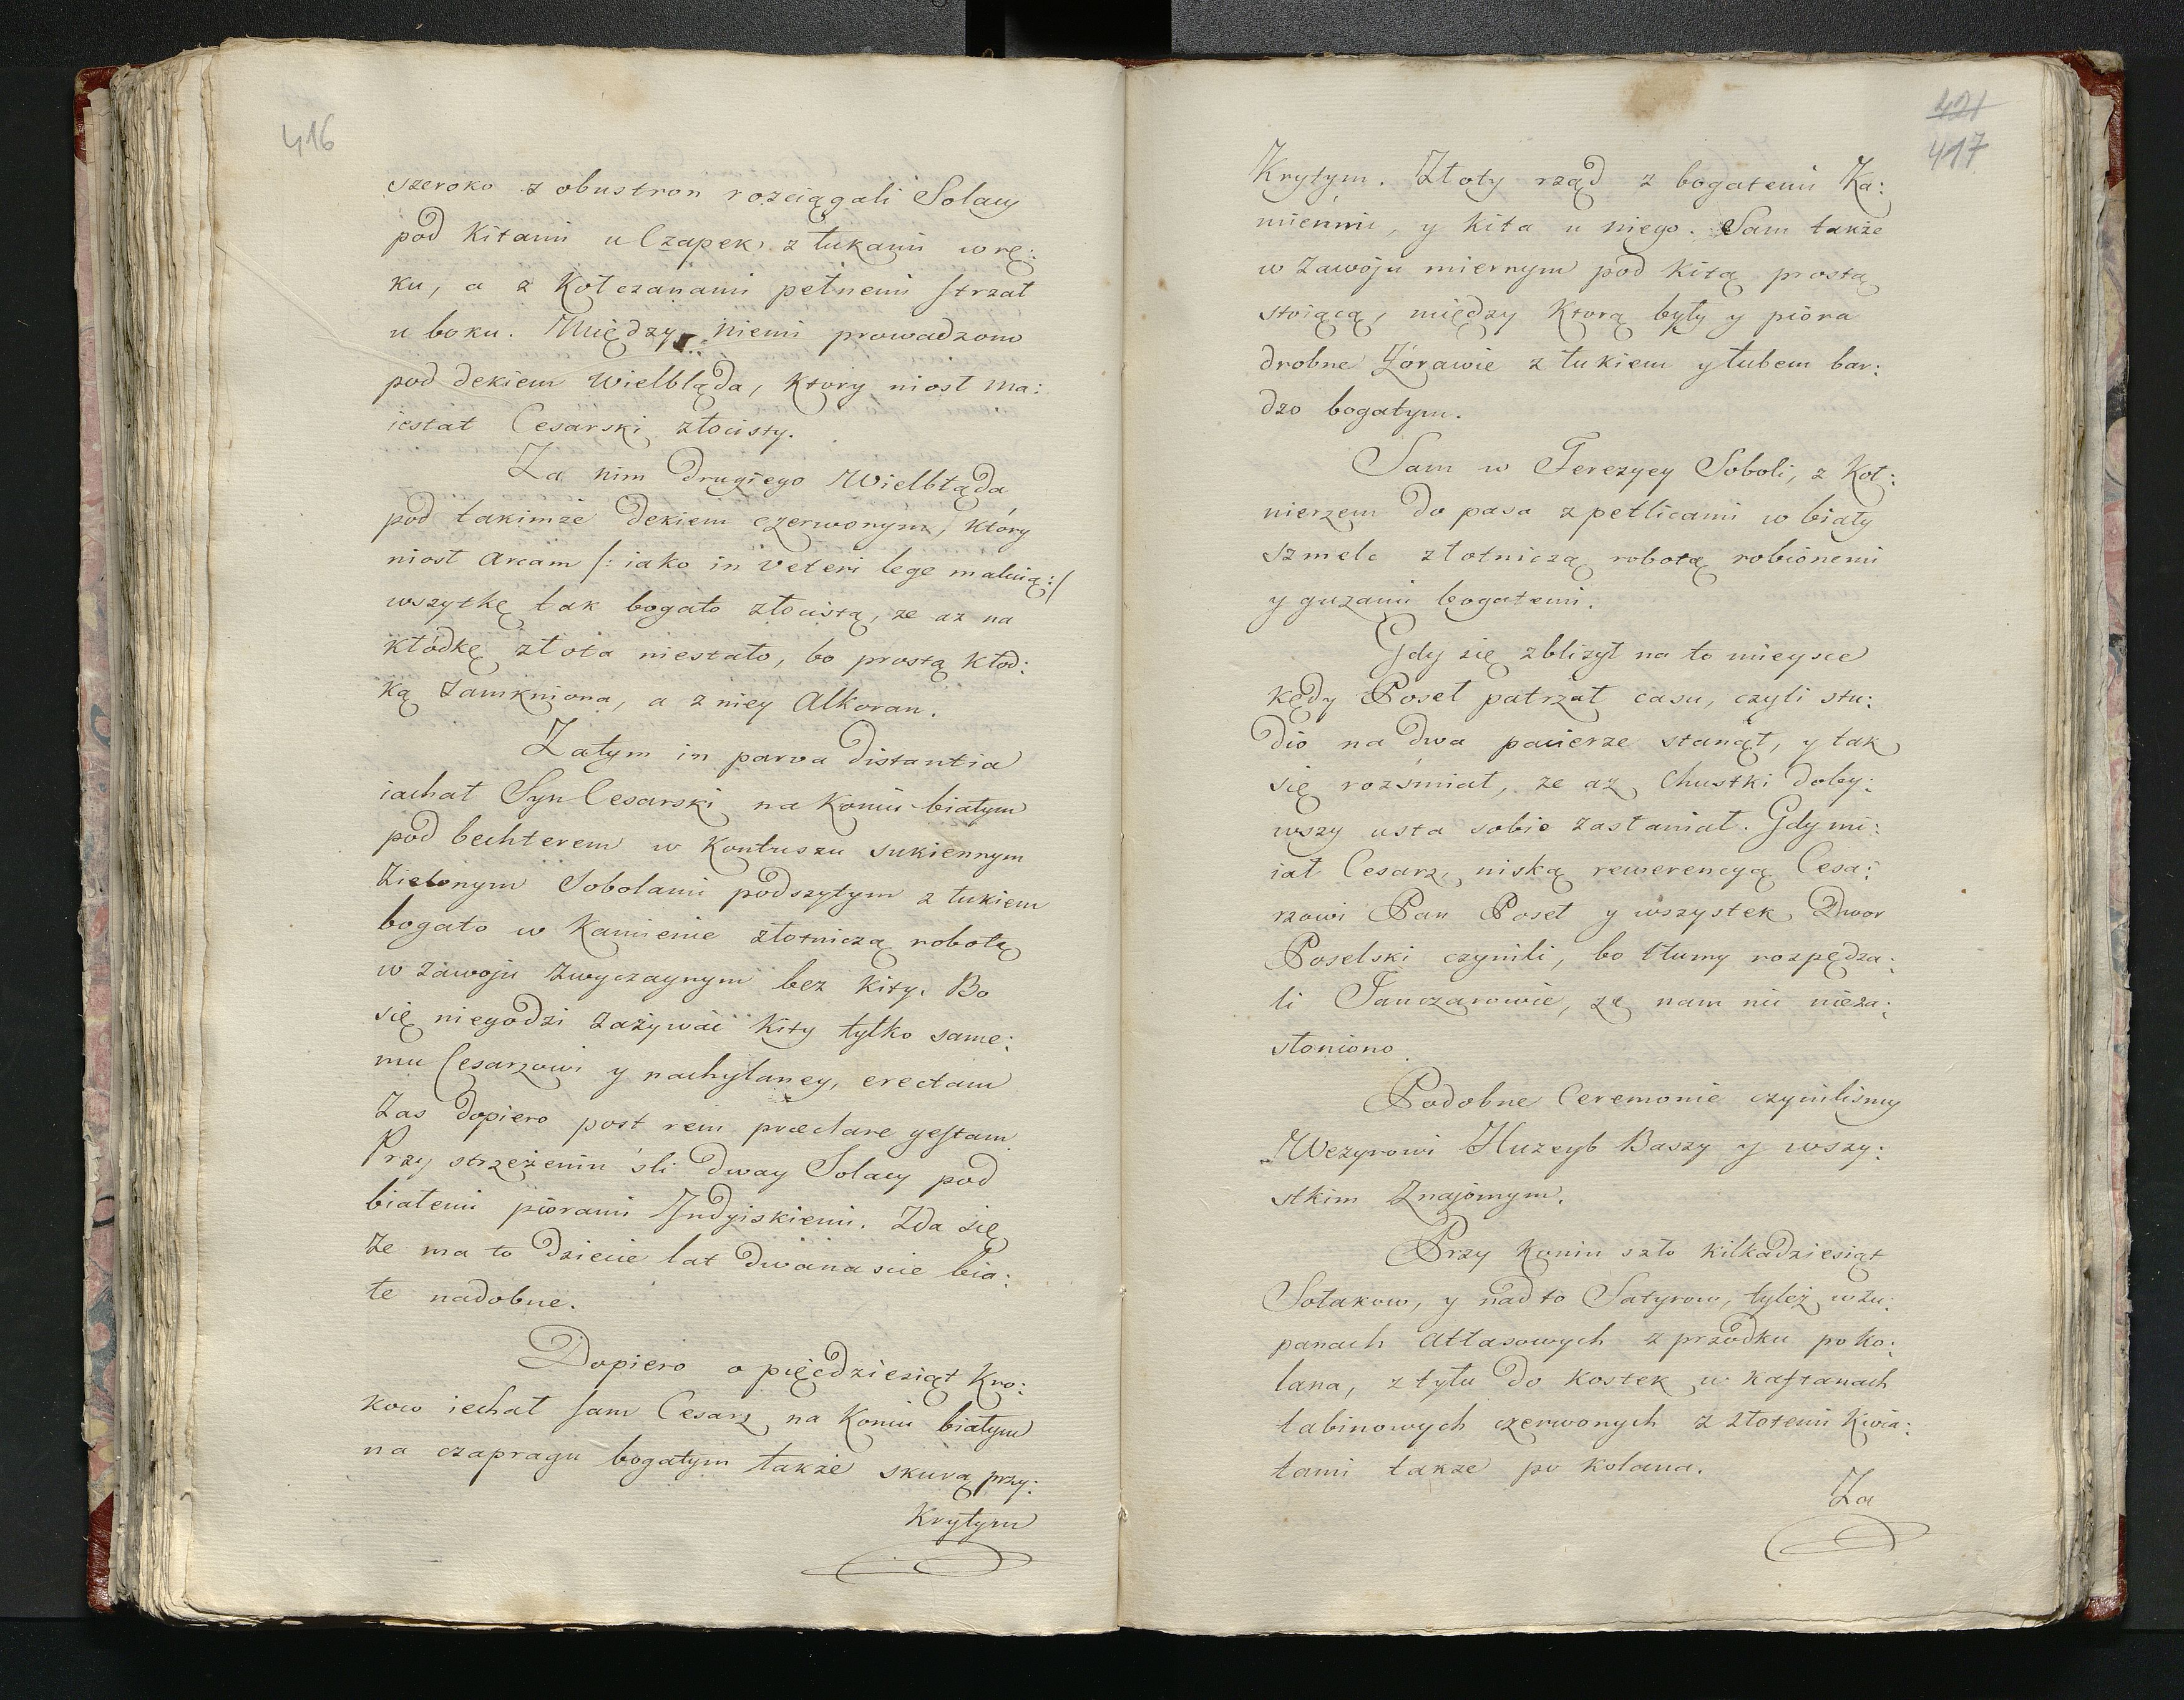 416
szeroko z obustron rozciągali Solacy
pod Kitami u Czapek z łukami w rę:
ku, a z Kołczanami pełnemi strzał
u boku. Między niemi prowadzono
pod dekiem Wielbłąda, Ktory niosł Ma:
iestat Cesarski złocisty.
Za nim drugiego Wielbłąda
pod takimże dekiem czerwonym, który
niosł Arcam /: iako in Veteri lege maluią :/
wszytkę tak bogato złocistą, ze az na
kłódkę złota niestało, bo prostą kłod:
ką zamkniona, a z niey Alkoran.
Zatym in parva distantia
iachał Syn Cesarski na Koniu białym
pod bechterem w Kontuszu sukiennym
Zielonym Sobolami podszytym z łukiem
bogato w Kamienie złotniczą robotą
w zawoju zwyczaynym bez Kity. Bo
się niegodzi zażywać Kity tylko same:
mu Cesarzowi y nachylaney, erectam
Zas dopiero post rem præclare gestam
Przy strzeżeniu śli dway Solacy pod
białemi piórami Jndyiskiemi. Zda się
Ze ma to Dziecie lat dwanascie bia:
łe nadobne.
Dopiero o pięcdziesiąt Kro:
kow iechał sam Cesarz na Koniu białym
na czapragu bogatym także skurą przy:
Krytym
421
417
Krytym. Złoty rząd z bogatemi Ka:
mieńmi, y Kita u niego. Sam także
w Zawoju miernym pod Kitą prostą
stoiącą, między Ktorą były y pióra
drobne Żórawie z łukiem y łubem bar:
dzo bogatym.
Sam w Ferezyey Soboli, z Koł:
nierzem do pasa z petlicami w biały
szmelc złotniczą robotą robionemi
y guzami bogatemi.
Gdy się zbliżył na to mieysce
kędy Poseł patrzał casu, czyli stu:
dio na dwa pacierze stanął, y tak
się rozśmiał, ze az Chustki doby:
wszy usta sobie zasłaniał. Gdy mi:
iał Cesarz, niską rewerencyą Cesa:
rzowi Pan Poseł y wszystek Dwor
Poselski czynili, bo tłumy rozpędza:
li Janczarowie, ze nam nic nieza:
słoniono.
Podobne Ceremonie czynilismy
Wezyrowi Huzeyb Baszy y wszy:
stkim Znajomym.
Przy Koniu szło Kilkadziesiąt
Sołakow, y nadto Satyrow, tyleż w żu:
panach Atłasowych z przodku po Ko:
lana, z tyłu do kostek w kaftanach
tabinowych czerwonych z złotemi Kwia:
tami takze po kolana.
Za